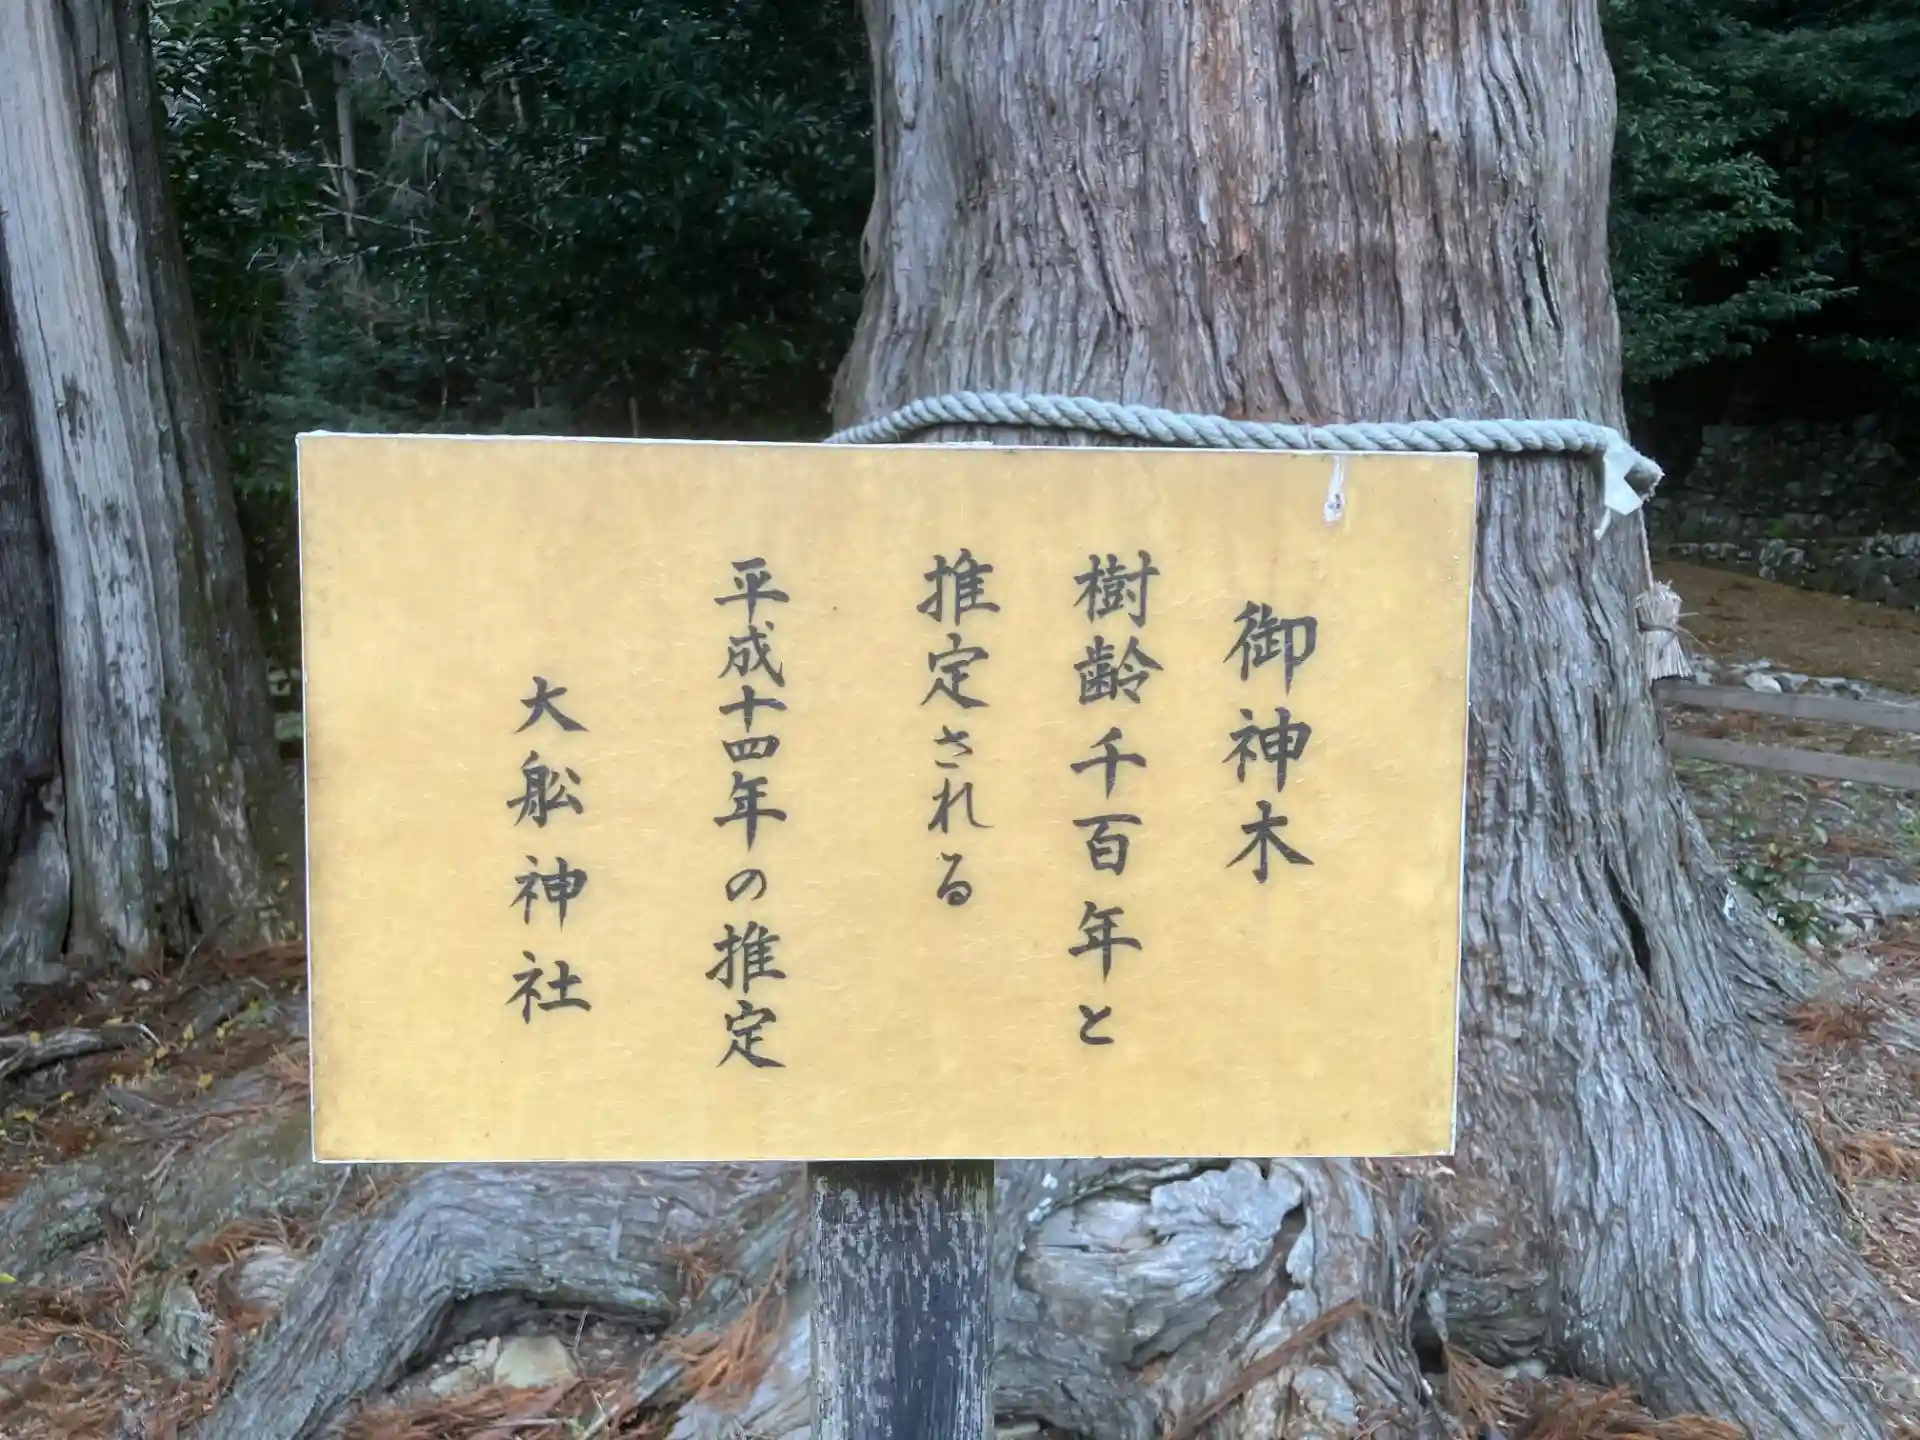 御神木
樹齢千百年と
推定される
平成十四年の推定
大舩神社